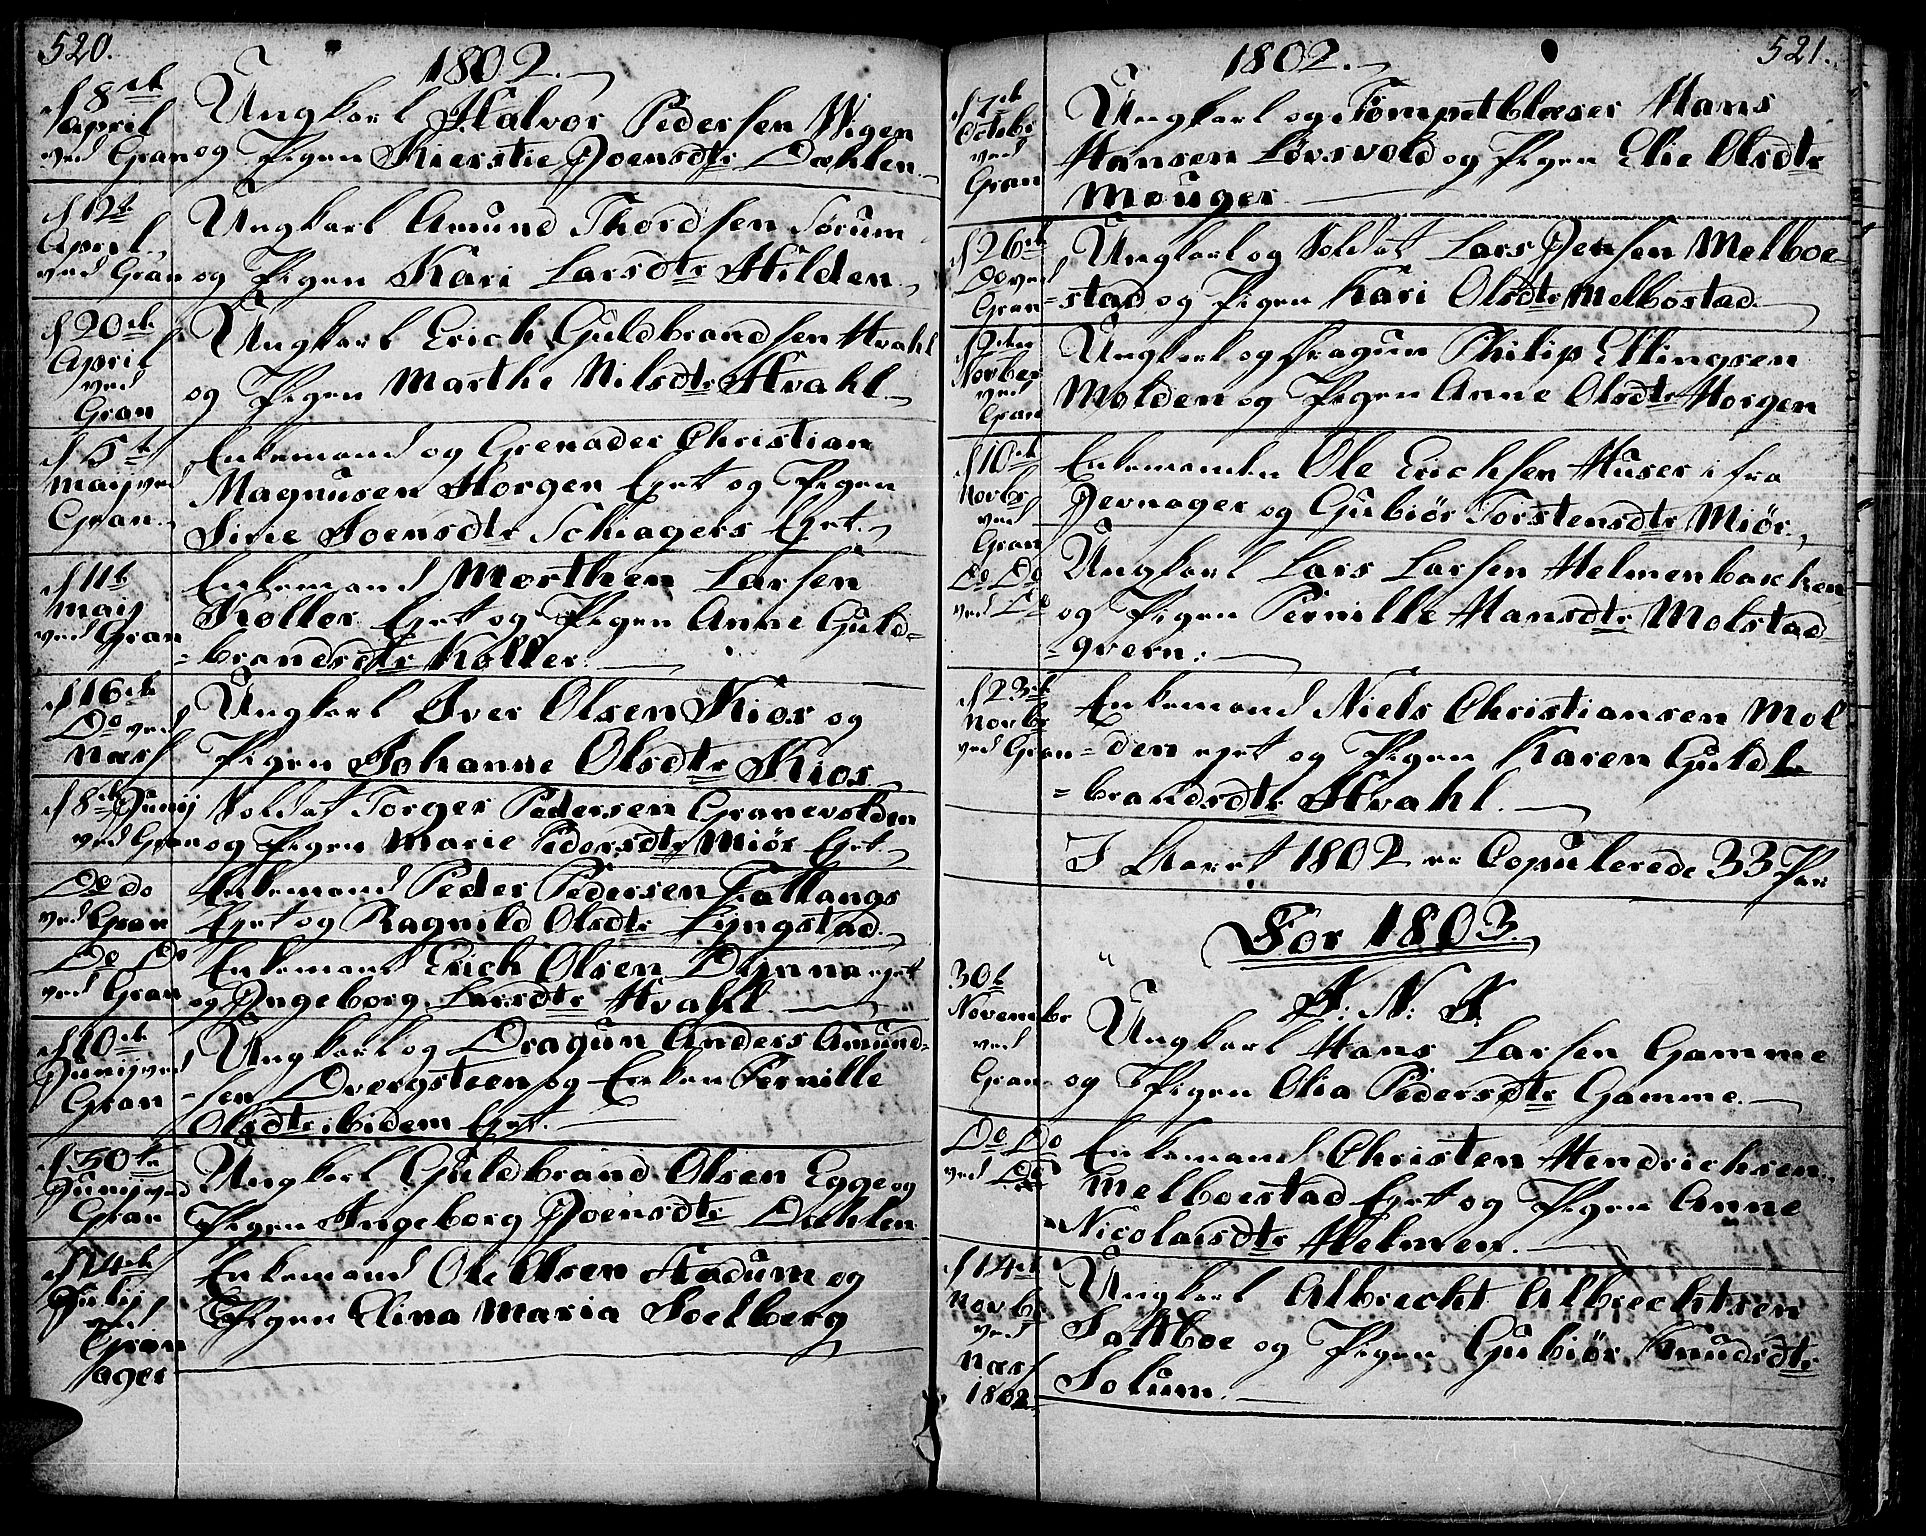 520.
1802.
d 8de
april
ved Gran
Ungkarl Halvor Pedersen Wigen
og Pigen Kierstie Joensdtr Dæhlen.
d 12te
April
ved Gran
Ungkarl Amund Thordsen Sørum
og Pigen Kari Larsdtr Hilden.
d 20de
April
ved
Gran
Ungkarl Erich Guldbrandsen Hvahl
og Pigen Marthe Nilsdtr Hvahl.
d 5te
May ved
Gran.
Enkemand og Grenader Christian
Magnusen Horgen Eyet og Pigen
Sirie Joensdtr Schiagers Eyet.
d 11te
may
ved Gran
Enkemand Morthen Larsen
Koller Eyet og Pigen Anne Guld=
=brandsdtr Koller.
d 16de
Do ved
Næss
Ungkarl Iver Olsen Kios og
Pigen Johanne Olsdtr Kios
d 8de Junij
ved Gran
Soldat Torger Pedersen Granevolden
og Pigen Marie Pedersdtr Miör Eyet.
Do do
ved Gran
Enkemand Peder Pedersen Fallangs
Eyet og Ragnild Olsdtr Lyngstad.
Do Do
ved Gran
Enkemand Erich Olsen Dynna eyet
og Ingeborg Larsdtr Hvahl.
d 10de
Junij ved
Gran
Ungkarl og Dragun Anders Amund=
=sen Dvergsteen og Enken Pernille
Olsdtr ibidem Eyet.
d 30te
Junij ved
Gran
Ungkarl Guldbrand Olsen Egge og
Pigen Ingeborg Joensdtr Dæhlen
d 14de
Julij
ved
Gran
ager
Enkemand Ole Olsen Hadum og
Pigen Elina Maria Soelberg
521.
1802.
d 7de
Octobr
ved
Gran
Ungkarl og Tompetblæser Hans
Hansen Lörsvold og Pigen Elie Olsdtr
Mouger
d 26de
Do ved
Gran
Ungkarl og Soldat Lars Jensen Melboe=
=stad og Pigen Kari Olsdtr Melbostad.
d 2den
Novber
ved
Gran
Ungkarl og Dragun Philip Ellingsen
Molden og Pigen Anne Olsdtr Horgen
d 10de
Novbr
ved
Gran
Enkemanden Ole Erichsen Huser i fra
Jevnager og Gubiör Torstensdtr Miör.
Do Do
ved Do
Ungkarl Lars Larsen Helmenbachen
og Pigen Pernille Hansdtr Molstad=
=qvern.
d 23de
Novbr
ved Gran
Enkemand Niels Christiansen Mol
=den eyet og Pigen Karen Guld
=brandsdtr Hvahl.
I Aaret 1802 er Copulerede 33 Par
For 1803.
J. N. J.
30te
Novembr
ved
Gran
Ungkarl Hans Larsen Gamme
og Pigen Olia Pedersdtr Gamme.
Do Do
ved Do
Enkemand Christen Hendrichsen
Melboestad Eyet og Pigen Anne
Nicolaisdtr Helmen.
d 14de
Novbr
ved
Næss
1802
Ungkarl Albrecht Albrechtsen
Sattboe og Pigen Gubiör Knudsdtr
Solum.